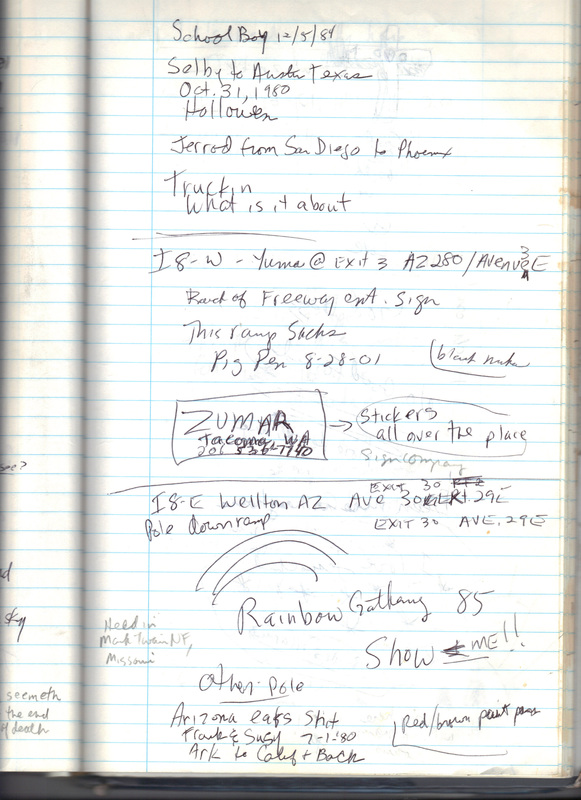 School Boy 12/5/84
Selby to Austa Texas
Oct. 31, 1980
Holloween
Jerrod from San Diego to Phoenix
Truckin
What is it about
I8-W - Yuma @ Exit 3 AZ280/Avenue 3E
Back of Freeway ent. Sign
This ramp Sucks
Pig Pen 8-28-01
black
ZUMAR
Tacoma, WA
206 536-7740
Stickers
all over the place
Sign Company
EXIT 30
I8-E Wellton AZ AVE 29E
Pole down ramp
EXIT 30 AVE. 29E
Rainbow Gathang 85
Show ME!!
Held in
Mark Twain NF,
Missouri
Other Pole
Arizona eats Shit
Frank & Susy 7-1-80
Ark to Calif + Back
Red/brown paint
see?
sky
seemeth
the end
of death